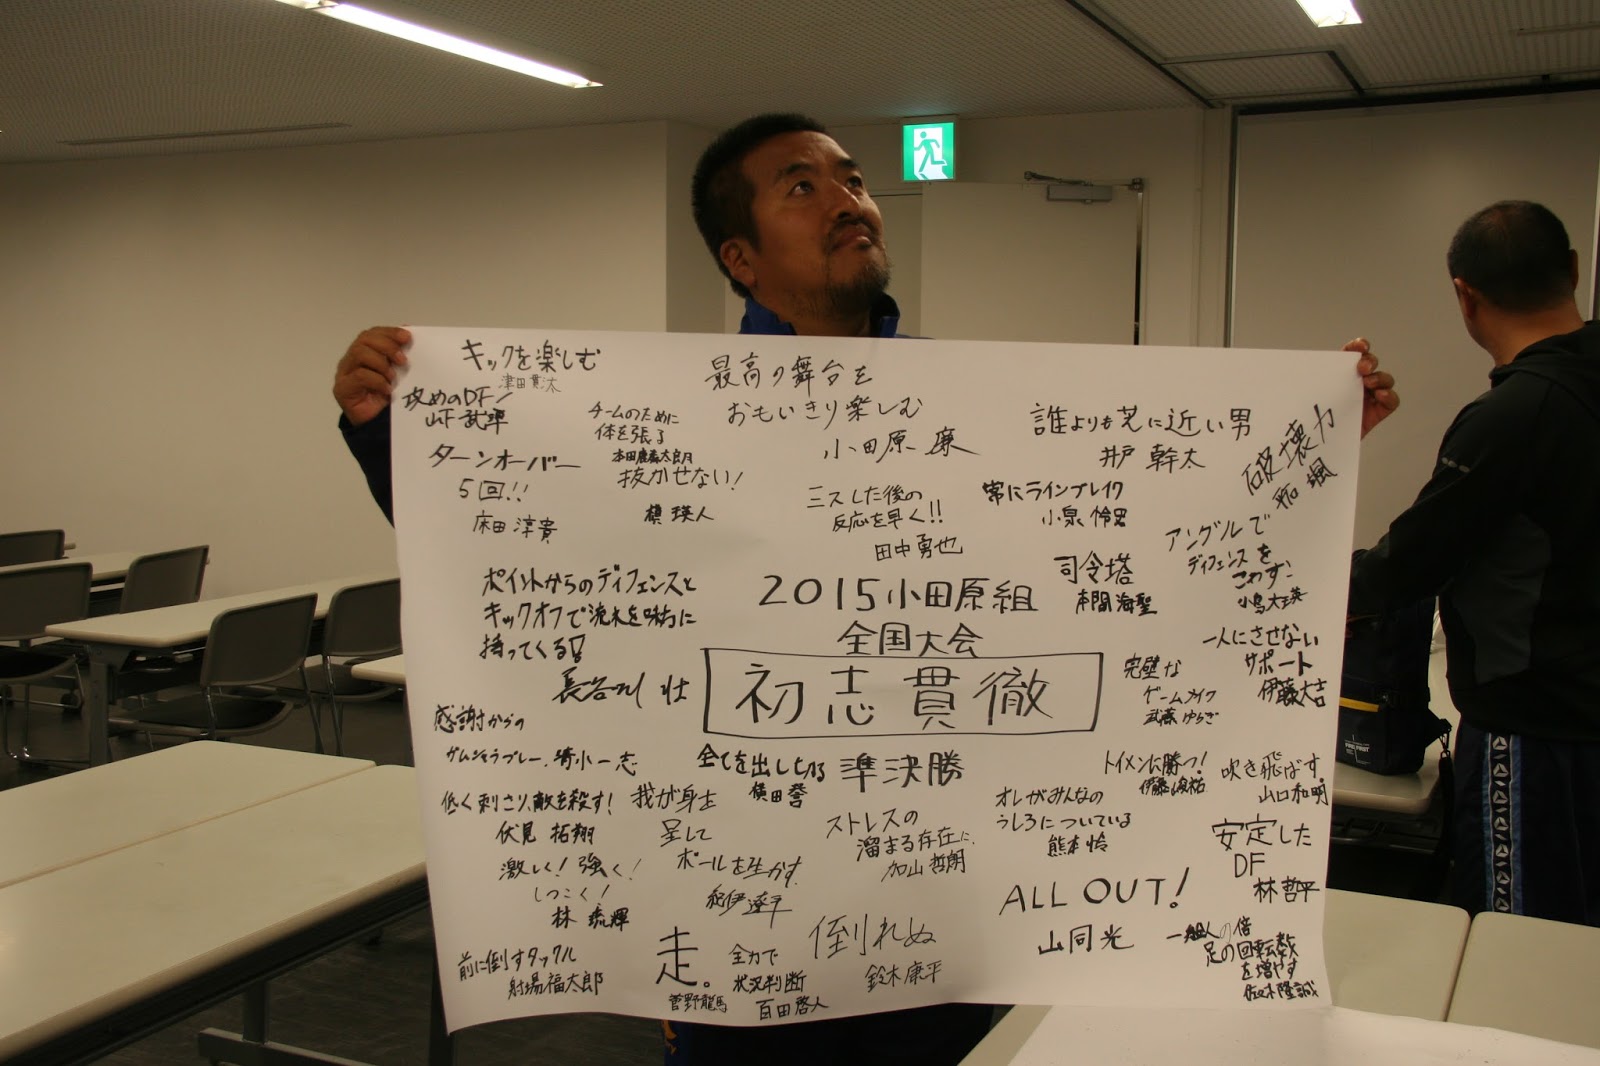 キックを楽しむ
津田貫太
攻めのDF!
山下 武準
ターンオーバー
5回!!
床田 淳貴
チームのために
体を張る
抜かせない!
槙 瑛人
最高の舞台を
おもいきり楽しむ
小田原 廉
ミスした後の
反応を早く!!
田中勇也
誰よりも芝に近い男
井戸 幹太
常にラインブレイク
小泉 怜
破壊力
颯
アングルで
ディフェンスを
こわす
小島大瑛
司令塔
本間 海聖
ポイントからのディフェンスと
キックオフで流れを味方に
持ってくる!
長谷川 壮
2015小田原組
全国大会
初志貫徹
準決勝
一人にさせない
サポート
伊藤大吉
完璧な
ゲームメイク
武藤 ゆらぎ
感謝からの
ガムシャラプレー 清水一志
全てを出し切る
横田 誉
低く刺さり、敵を殺す!
伏見 拓翔
激しく! 強く!
しつこく!
林 琉輝
我が身を
呈して
ボールを生かす
紀伊 遼平
ストレスの
溜まる存在に
加山 哲朗
オレがみんなの
うしろについている
熊本 怜
トイメンに勝つ!
伊藤 峻祐
吹き飛ばす。
山口和明
安定した
DF
林 哲平
ALL OUT!
山同光
前に倒すタックル
射場福太郎
走。
菅野龍馬
全力で
状況判断
百田啓人
倒れぬ
鈴木康平
足の回転数
を増やす
佐々木隆誠